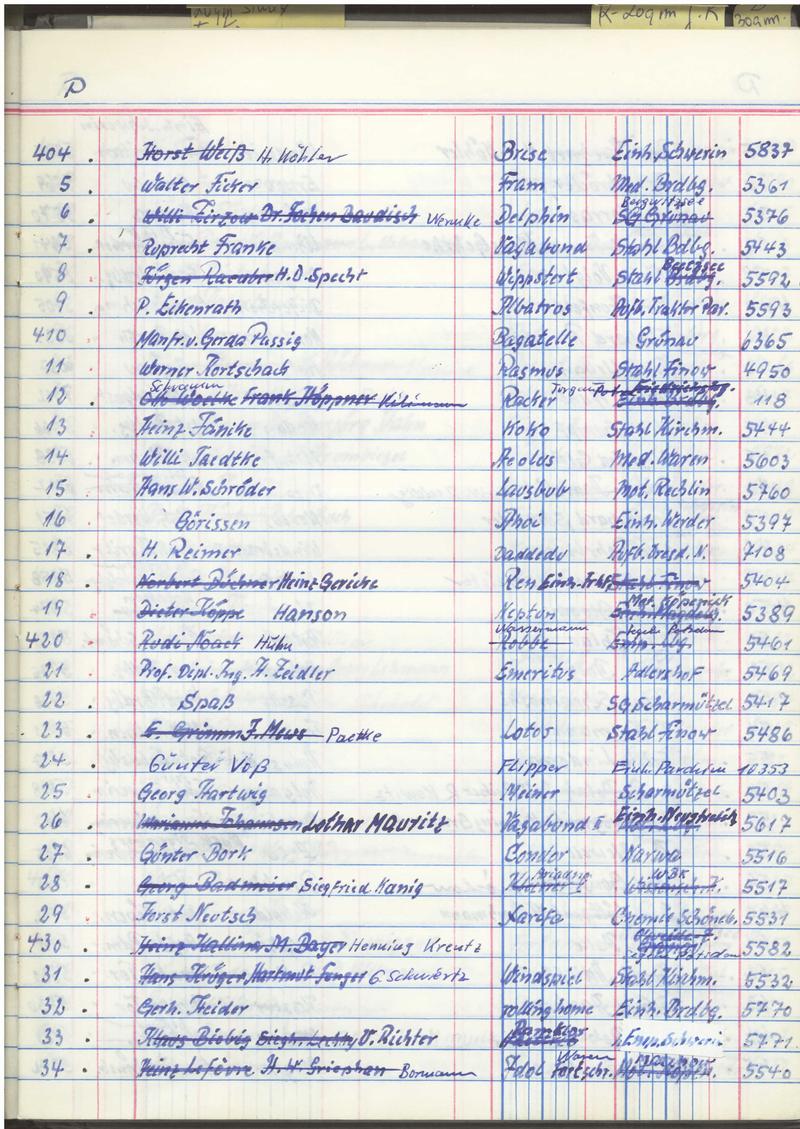 P
404 . Horst Weiß H. Köhler Brise Einh. Schwerin 5837
5 . Walter Ficker Fram Med. Brdbg. 5361
6 . Willi Dr. Jochen Baudisch Wernike Delphin SG Grünau 5376
7 . Ruprecht Franke Vagabund Stahl Bdbg. 5443
8 . Jürgen H.D. Specht Wippstert Stahl 5592
9 . P. Eikenrath Albatros Aufb. Traktor Par. 5593
410 . Manfr. u. Gerda Passig Bagatelle Grünau 6365
11 . Werner Kortschach Rasmus Stahl Finow 4950
12 . Schramm Otto Woelke Frank Höppner Racker 118
13 . Heinz Jänike Koko Stahl Kirchm. 5444
14 . Willi Taedtke Aeolus Med. Waren 5603
15 . Hans W. Schröder Lausbub Mot. Rechlin 5760
16 . Görissen Ahoi Einh. Werder 5397
17 . H. Reimer daddedu Aufb. Dresd. N. 7108
18 . Norbert Büchner Heinz Gericke Ren Stahl Finow 5404
19 . Dieter Höppe Hanson Neptun Mot. Köpenick 5389
420 . Rudi Noack Huhn Wassermann Robbe Segeln Potsdam 5461
21 . Prof. Dipl. Ing. H. Zeidler Emeritus Adlershof 5469
22 . Spaß SG Scharmützel 5417
23 . E. Grimm J. Mews Paetke Lotos Stahl Finow 5486
24 . Günter Voß Flipper Einh. Parchim 10353
25 . Georg Hartwig Meiner Scharmützel 5403
26 . Marianne Johannsen Lothar Mauritz Vagabund II 5617
27 . Günter Bork Condor Narwa 5516
28 . Georg Badmeier Siegfried Kanig Ariadne 5517
29 . Horst Neutsch Xarifa Chemie Schöneb. 5531
430 . Heinz M. Bayer Henning Kreutz 5582
31 . Hans Krüger Hartmut G. Schwertz Windspiel Stahl Kirchm. 5532
32 . Gerh. Heider rolling home Einh. Brdbg. 5770
33 . Klaus V. Richter Emp. Schwerin 5771
34 . Heinz Lefèvre H. W. Griephan Bormann Idol Waren 5540